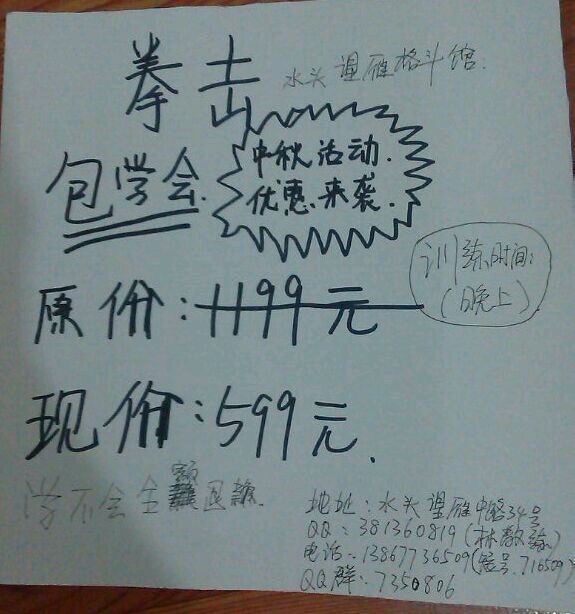 拳击
水头望雁格斗馆.
包学会.
中秋活动.
优惠.来袭.
训练时间:
(晚上)
原价:1199元
现价:599元.
学不会全额退款.
地址:水头望雁中路34号
QQ:381360819(林教练)
电话:13867736509(短号.716509)
QQ群:7350806